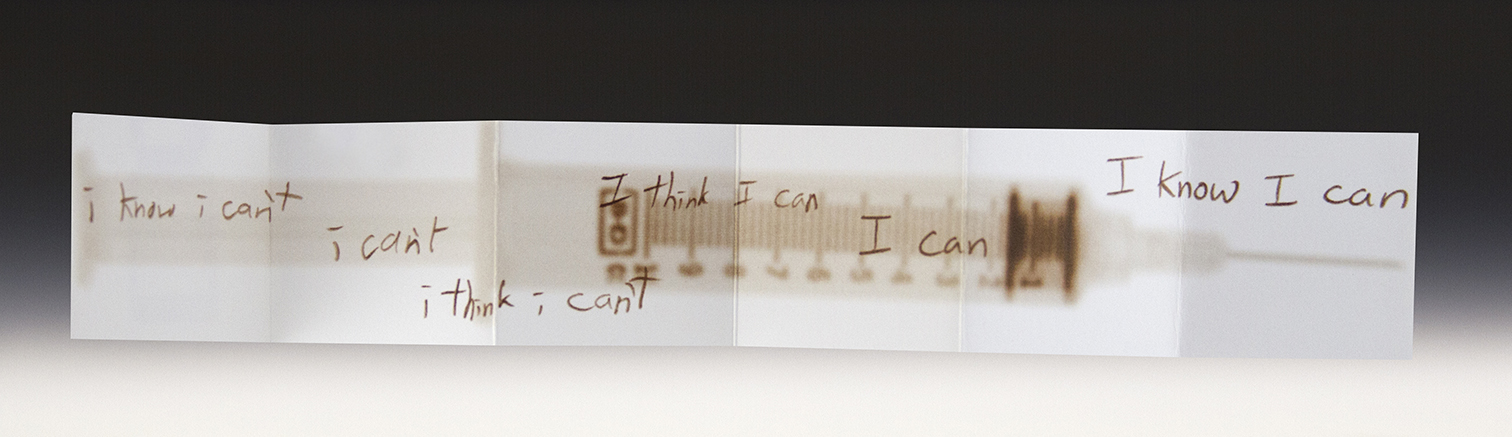 i know i can't
i can't
i think i can't
I think I can
I can
I know I can